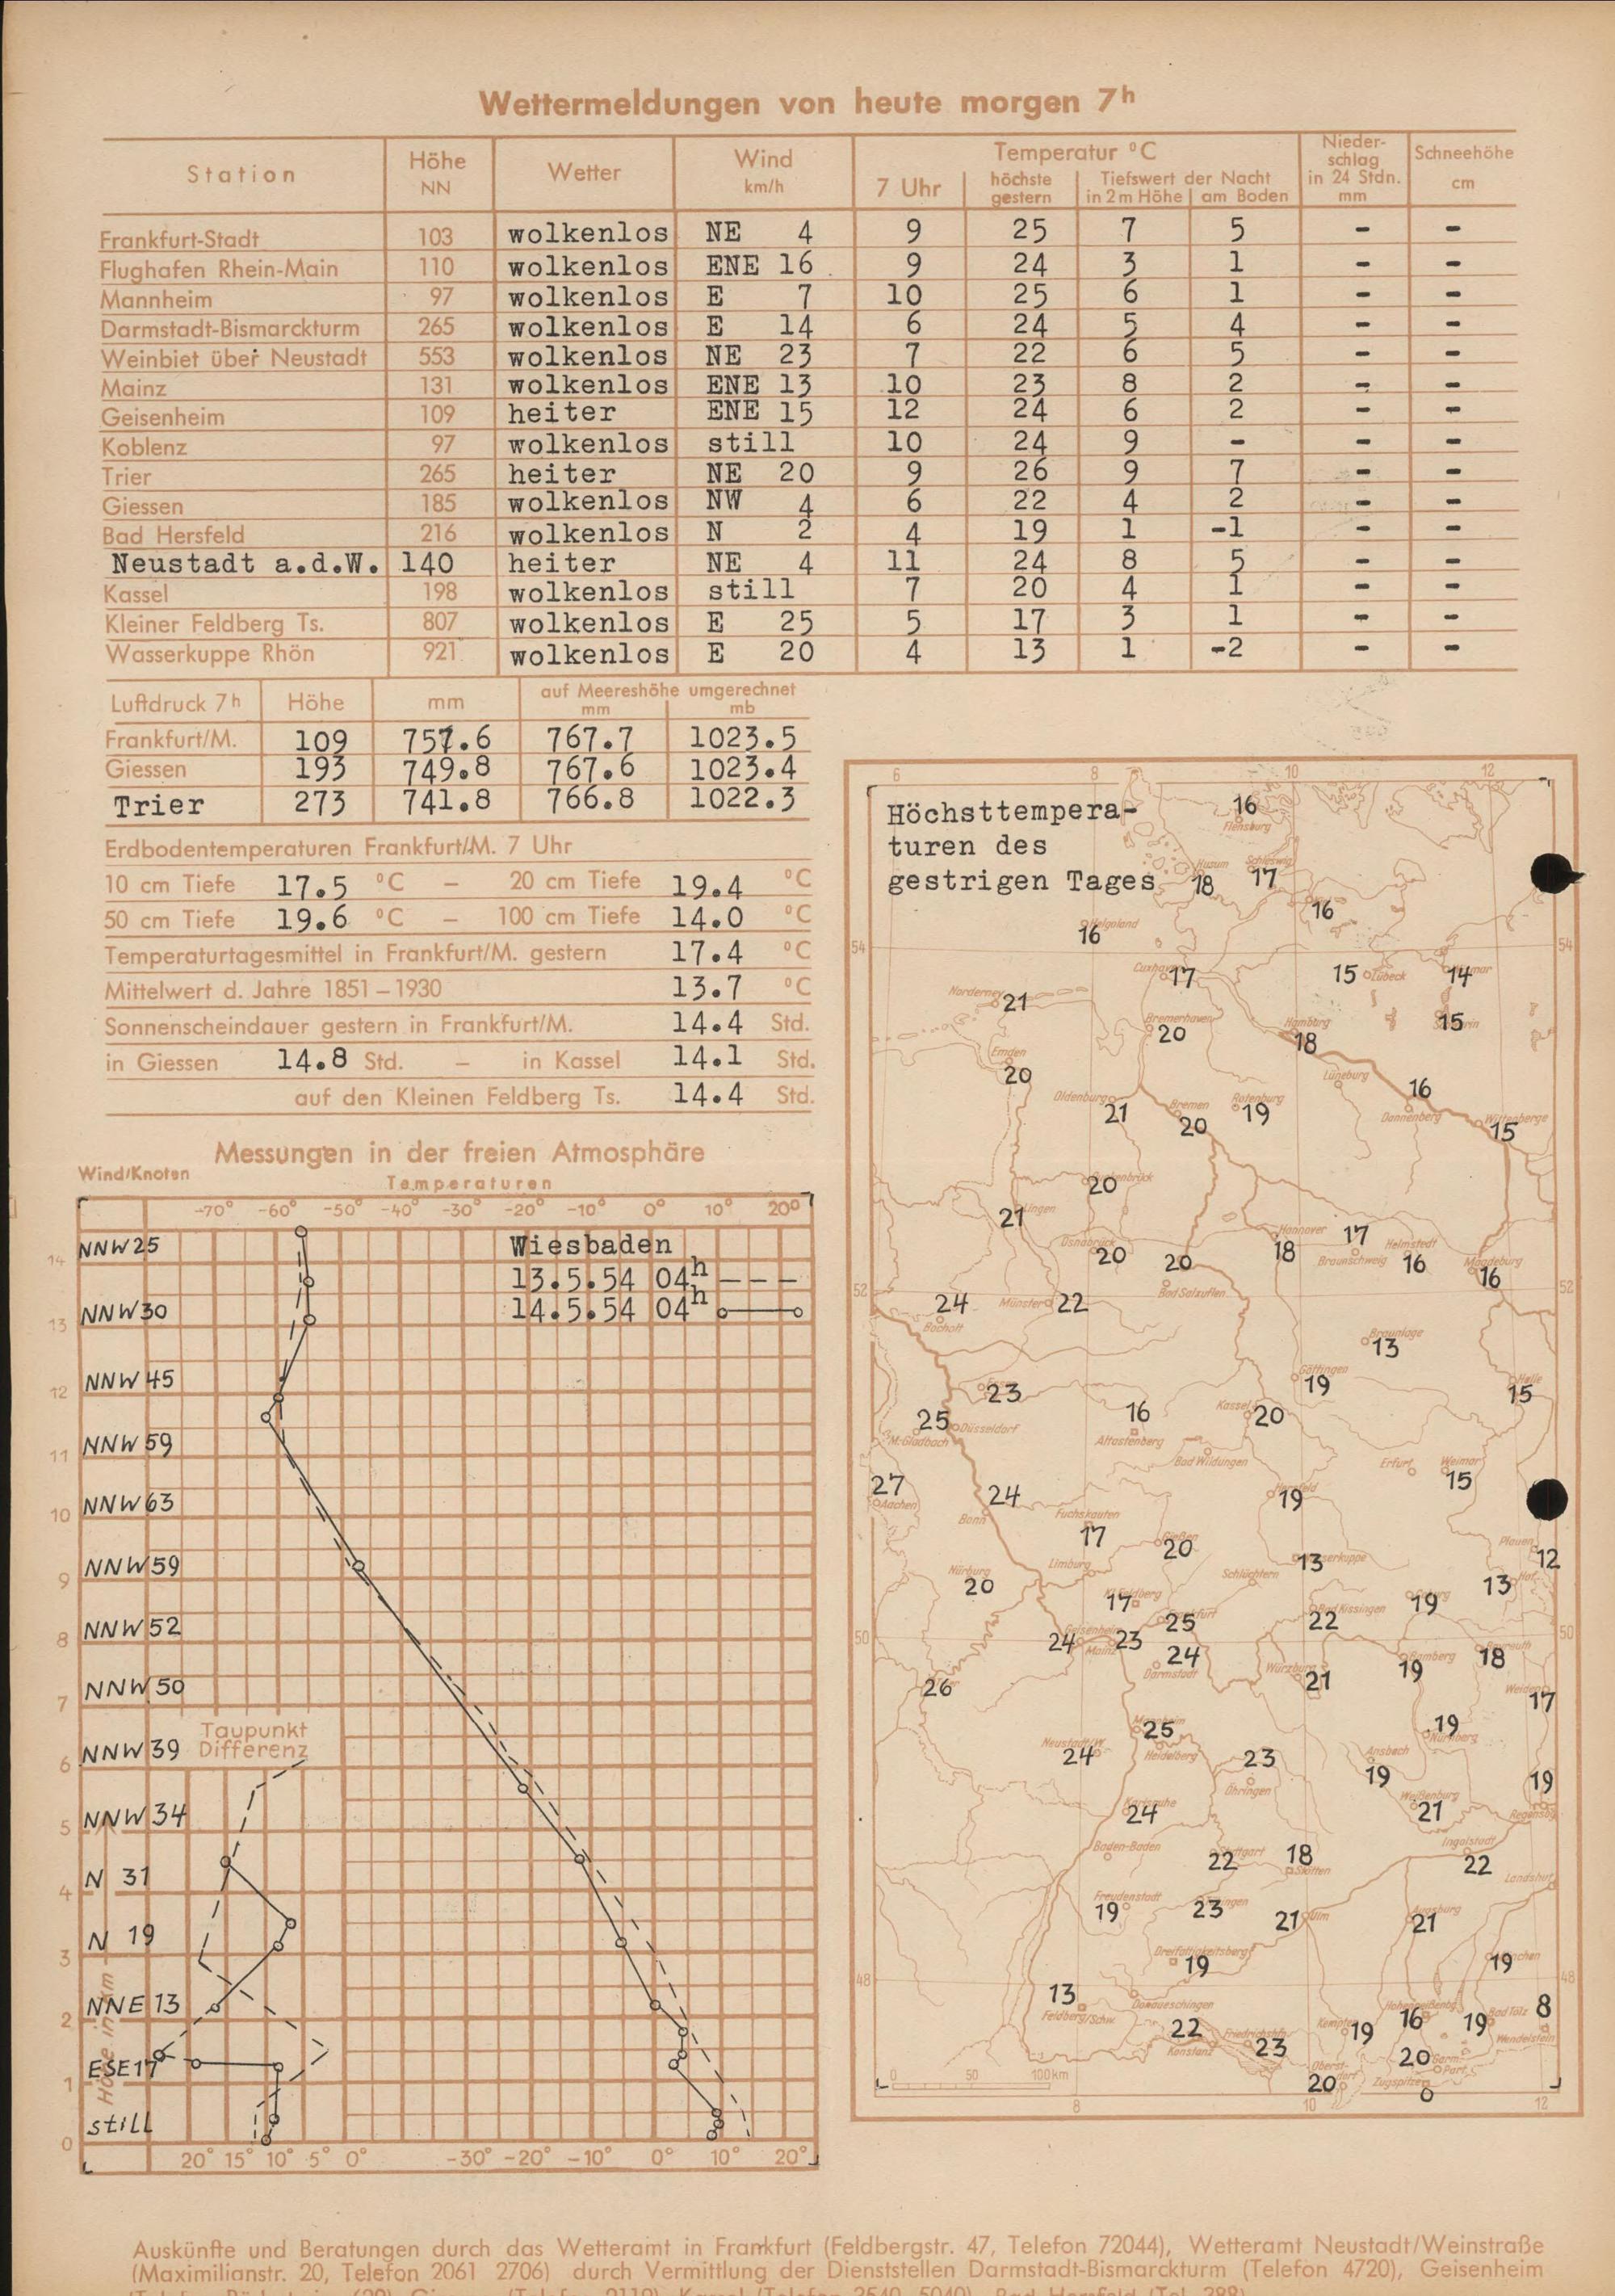 Wettermeldungen von heute morgen 7h
Station Höhe NN Wetter Wind km/h Temperatur °C Nieder-schlag in 24 Stdn. mm Schneehöhe cm
7 Uhr höchste gestern Tiefswert der Nacht in 2m Höhe am Boden
Frankfurt-Stadt 103 wolkenlos NE 4 9 25 7 5 - -
Flughafen Rhein-Main 110 wolkenlos ENE 16 9 24 3 1 - -
Mannheim 97 wolkenlos E 7 10 25 6 1 - -
Darmstadt-Bismarckturm 265 wolkenlos E 14 6 24 5 4 - -
Weinbiet über Neustadt 553 wolkenlos NE 23 7 22 6 5 - -
Mainz 131 wolkenlos ENE 13 10 23 8 2 - -
Geisenheim 109 heiter ENE 15 12 24 6 2 - -
Koblenz 97 wolkenlos still 10 24 9 - - -
Trier 265 heiter NE 20 9 26 9 7 - -
Giessen 185 wolkenlos NW 4 6 22 4 2 - -
Bad Hersfeld 216 wolkenlos N 2 4 19 1 -1 - -
Neustadt a.d.W. 140 heiter NE 4 11 24 8 5 - -
Kassel 198 wolkenlos still 7 20 4 1 - -
Kleiner Feldberg Ts. 807 wolkenlos E 25 5 17 3 1 - -
Wasserkuppe Rhön 921 wolkenlos E 20 4 13 1 -2 - -
Luftdruck 7h Höhe mm auf Meereshöhe umgerechnet mm mb
Frankfurt/M. 109 757.6 767.7 1023.5
Giessen 193 749.8 767.6 1023.4
Trier 273 741.8 766.8 1022.3
Erdbodentemperaturen Frankfurt/M. 7 Uhr
10 cm Tiefe 17.5 °C – 20 cm Tiefe 19.4 °C
50 cm Tiefe 19.6 °C – 100 cm Tiefe 14.0 °C
Temperaturtagesmittel in Frankfurt/M. gestern 17.4 °C
Mittelwert d. Jahre 1851–1930 13.7 °C
Sonnenscheindauer gestern in Frankfurt/M. 14.4 Std.
in Giessen 14.8 Std. – in Kassel 14.1 Std.
auf den Kleinen Feldberg Ts. 14.4 Std.
Messungen in der freien Atmosphäre
Wind/Knoten Temperaturen
-70° -60° -50° -40° -30° -20° -10° 0° 10° 20°
NNW 25 Wiesbaden
14 13.5.54 04h – – –
NNW 30 14.5.54 04h
13
NNW 45
12
NNW 59
11
NNW 63
10
NNW 59
9
NNW 52
8
NNW 50
7
Taupunkt
NNW 39 Differenz
6
NNW 34
5
N 31
4
N 19
3
NNE 13
2
ESE 17
1
still
0
Höhe in km
20° 15° 10° 5° 0° -30° -20° -10° 0° 10° 20°
6 8 10 12
Höchsttempera-
turen des
gestrigen Tages
16 Flensburg
Husum 18 Schleswig 17
16
Helgoland 16
54 54
Cuxhaven 17 15 Lübeck 14 Wismar
Norderney 21
Bremerhaven 20 Hamburg 18 15 Schwerin
Emden 20 Lüneburg
16 Dannenberg
Oldenburg 21 Bremen 20 Rotenburg 19 Wittenberge 15
20
21 Lingen
Osnabrück 20 20 Bad Salzuflen Hannover 18 17 Braunschweig Helmstedt 16 Magdeburg 16
52 52
24 Bocholt Münster 22
Braunlage 13
Essen 23 Göttingen 19 Halle 15
25 Düsseldorf M.-Gladbach 16 Altastenberg Kassel 20
Bad Wildungen Erfurt Weimar 15
27 Aachen 24 Bonn Fuchskauten 17 Hersfeld 19
Gießen 20 Plauen 12
Nürburg 20 Limburg Schlüchtern Wasserkuppe 13 Hof 13
Kl. Feldberg 17 Frankfurt 25 Bad Kissingen 22 Coburg 19
50 50
Geisenheim 24 Mainz 23 24 Darmstadt Würzburg 21 Bamberg 19 Bayreuth 18
26 Weiden 17
Mannheim 25 Heidelberg 19 Nürnberg
Neustadt/W. 24 23 Öhringen Ansbach 19 19
Karlsruhe 24 Weißenburg 21 Regensbg.
Baden-Baden Stuttgart 22 18 Stötten Ingolstadt 22
Landshut
Freudenstadt 19 23 21 Ulm Augsburg 21
Dreifaltigkeitsberg 19 München 19
48 48
13 Feldberg/Schw. Donaueschingen Hohenpeißenbg. 16 19 Bad Tölz 8 Wendelstein
22 Konstanz Friedrichshfn. 23 Kempten 19
20 Garm.-Part.
Oberstdorf 20 Zugspitze 0
0 50 100 km
8 10 12
Auskünfte und Beratungen durch das Wetteramt in Frankfurt (Feldbergstr. 47, Telefon 72044), Wetteramt Neustadt/Weinstraße
(Maximilianstr. 20, Telefon 2061 2706) durch Vermittlung der Dienststellen Darmstadt-Bismarckturm (Telefon 4720), Geisenheim